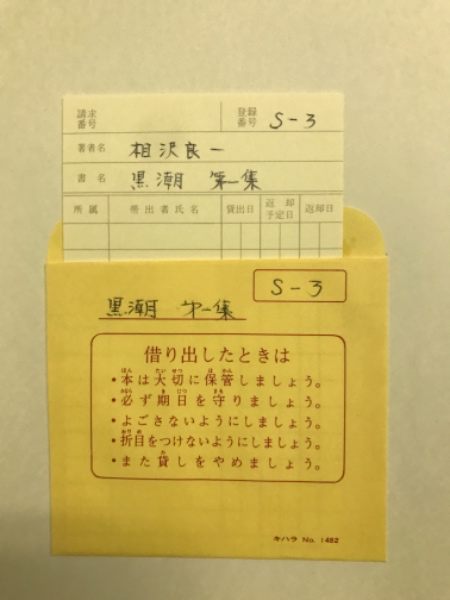 請求番号 登録番号 S-3
著者名 相沢良一
書名 黒潮 第一集
所属 帯出者氏名 貸出日 返却予定日 返却日
S-3
黒潮 第一集
借り出したときは
・本は大切に保管しましょう。
・必ず期日を守りましょう。
・よごさないようにしましょう。
・折目をつけないようにしましょう。
・また貸しをやめましょう。
キハラ No. 1482